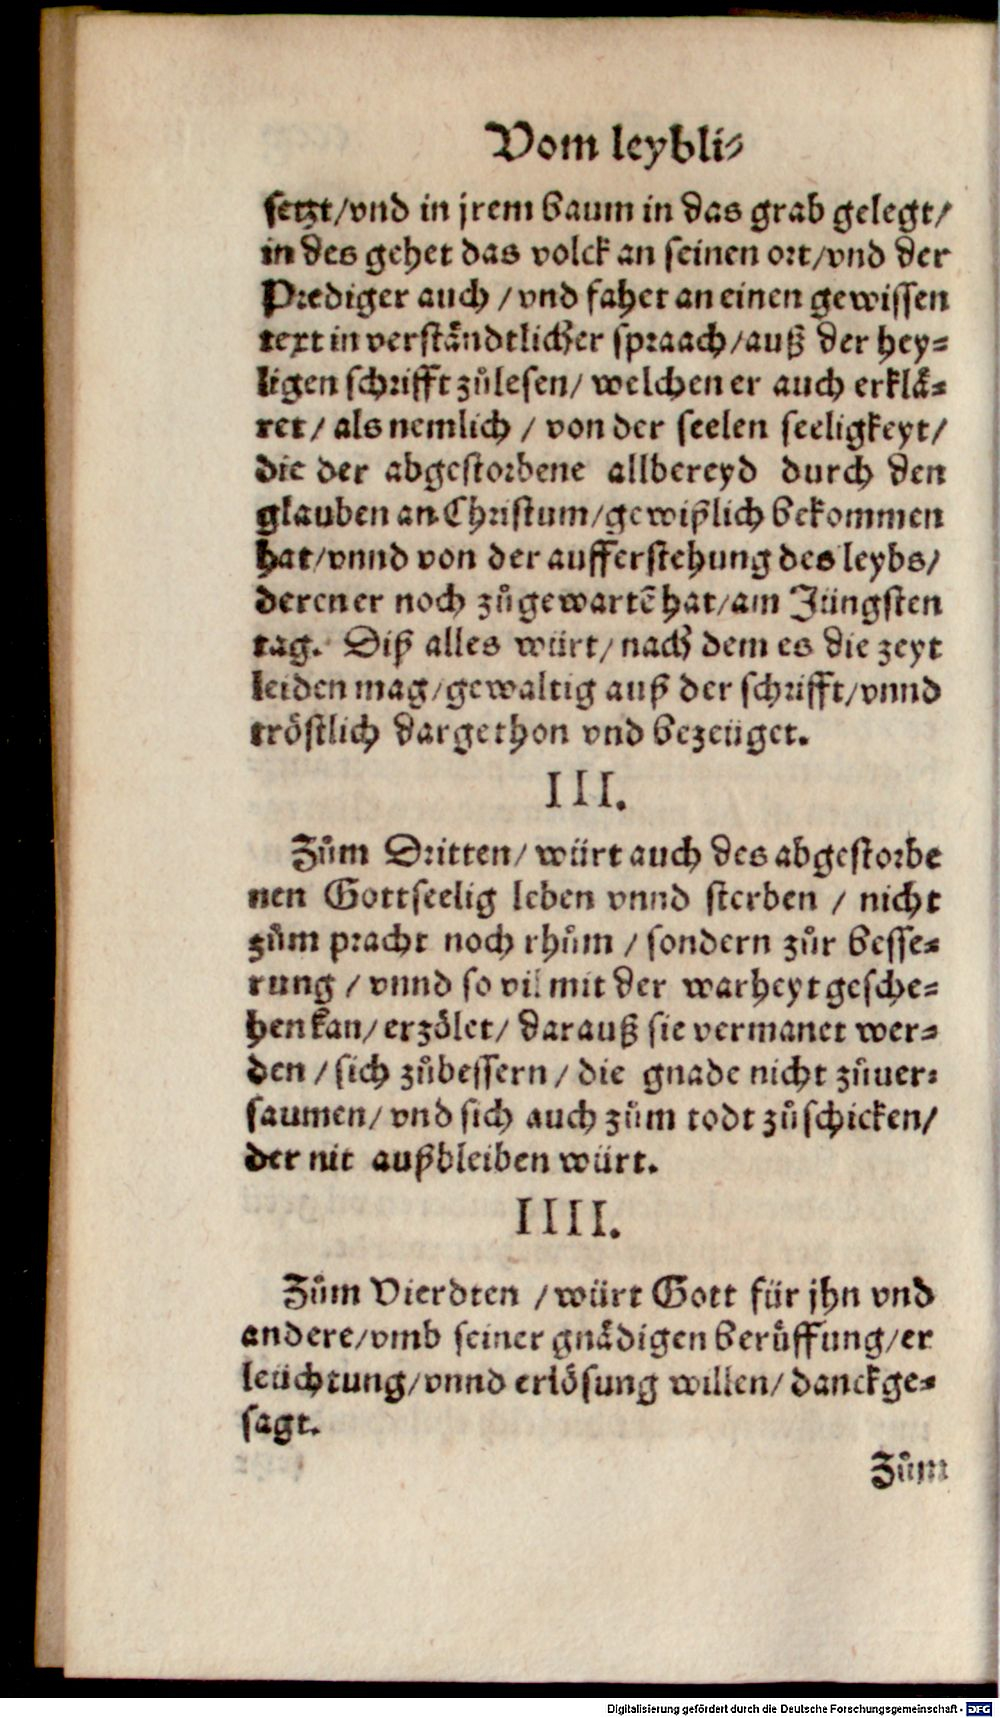 Vom leybli-
setzt/vnd in jrem baum in das grab gelegt/
in des gehet das volck an seinen ort/vnd der
Prediger auch /vnd fahet an einen gewissen
text in verståndtlicher spraach/auß der hey-
ligen schrifft zůlesen/ welchen er auch erklå-
ret/ als nemlich / von der seelen seeligkeyt/
die der abgestorbene allbereyd durch den
glauben an Christum/gewißlich bekommen
hat/vnnd von der aufferstehung des leybs/
deren er noch zůgewartē hat/am Jüngsten
tag. Diß alles würt/nach dem es die zeyt
leiden mag/gewaltig auß der schrifft/vnnd
tröstlich dargethon vnd bezeüget.
III.
Zům Dritten/ würt auch des abgestorbe
nen Gottseelig leben vnnd sterben / nicht
zům pracht noch rhům / sondern zůr besse-
rung / vnnd so vil mit der warheyt gesche-
hen kan/ erzölet/ darauß sie vermanet wer-
den / sich zůbessern / die gnade nicht zůuer-
saumen/ vnd sich auch zům todt zůschicken/
der nit außbleiben würt.
IIII.
Zům Vierdten /würt Gott für jhn vnd
andere/vmb seiner gnådigen berůffung/er
leüchtung/vnnd erlösung willen/ danckge-
sagt.
Zům
Digitalisierung gefördert durch die Deutsche Forschungsgemeinschaft - DFG